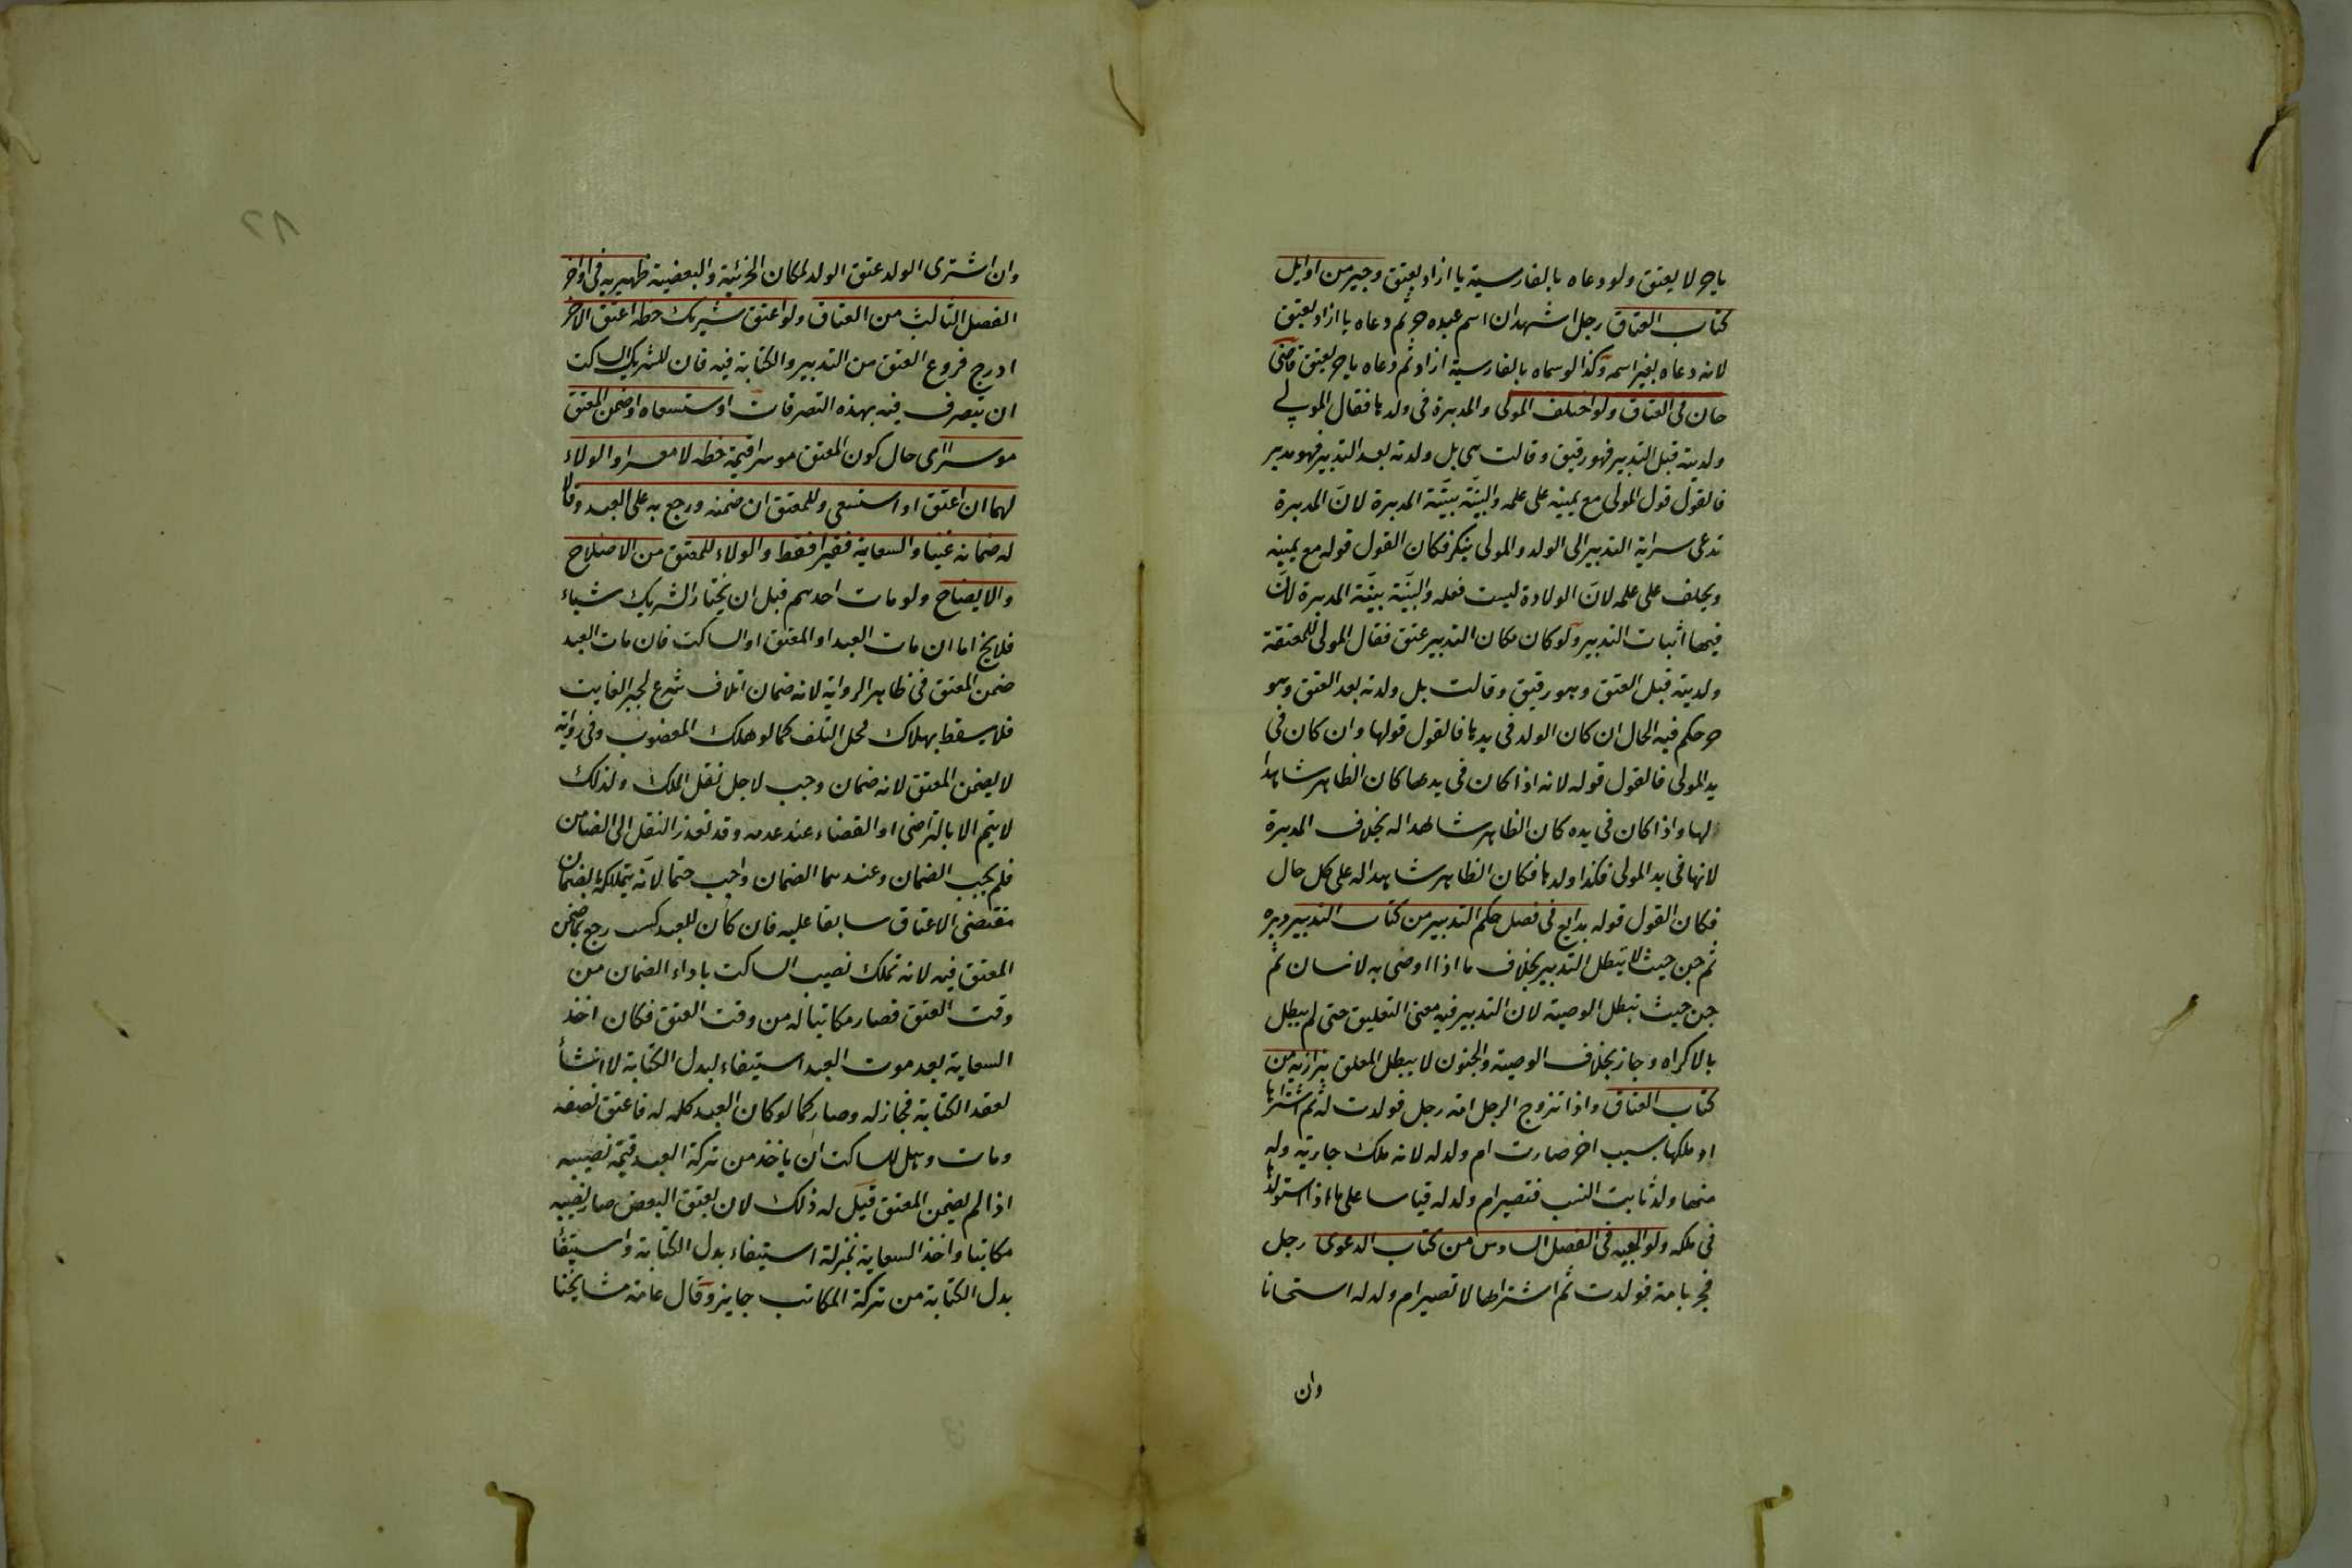 يا حر لا يعتق ولو دعاه بالفارسية يا ازاد يعتق وجيز من اوايل
كتاب العتاق رجل اشهد ان اسم عبده حر ثم دعاه يا ازاد يعتق
لانه دعاه بغير اسمه وكذا لو سماه بالفارسية ازاد ثم دعاه يا حر يعتق قاضى
خان فى العتاق ولو اختلف المولى والمدبرة فى ولدها فقال المولى
ولدته قبل التدبير فهو رقيق وقالت هى بل ولدته بعد التدبير فهو مدبر
فالقول قول المولى مع يمينه على علمه والبينة بينة المدبرة لان المدبرة
تدعى سراية التدبير الى الولد والمولى ينكر فكان القول قوله مع يمينه
ويحلف على علمه لان الولادة ليست فعله والبينة بينة المدبرة لان
فيها اثبات التدبير ولو كان مكان التدبير عتق فقال المولى للمعتقة
ولدته قبل العتق وهو رقيق وقالت بل ولدته بعد العتق وهو
حر حكم فيه الحال ان كان الولد فى يدها فالقول قولها وان كان فى
يد المولى فالقول قوله لانه اذا كان فى يدها كان الظاهر شاهدا
لها واذا كان فى يده كان الظاهر شاهدا له بخلاف المدبرة
لانها فى يد المولى فكذا ولدها فكان الظاهر شاهدا له على كل حال
فكان القول قوله بدايع فى فصل حكم التدبير من كتاب التدبير دبره
ثم جن حيث لا يبطل التدبير بخلاف ما اذا اوصى به لانسان ثم
جن حيث تبطل الوصية لان التدبير فيه معنى التعليق حتى لم يبطل
بالاكراه وجاز بخلاف الوصية والجنون لا يبطل المعلق بزازيه من
كتاب العتاق واذا تزوج الرجل امة رجل فولدت له ثم اشتراها
او ملكها بسبب اخر صارت ام ولد له لانه ملك جارية وله
منها ولد ثابت النسب فتصير ام ولد له قياسا على ما اذا استولدها
فى ملكه ولوالجيه فى الفصل السادس من كتاب الدعوى رجل
فجر بامة فولدت ثم اشتراها لا تصير ام ولد له استحسانا
وان
وان اشترى الولد عتق الولد لمكان الجزئية والبعضية ظهيريه فى اواخر
الفصل الثالث من العتاق ولو اعتق شريك حظه اعتق الاخر
ادرج فروع العتق من التدبير والكتابة فيه فان للشريك الساكت
ان يتصرف فيه بهذه التصرفات او استسعاه او ضمن المعتق
موسرا اى حال كون المعتق موسرا قيمة حظه لا معسرا والولاء
لهما ان اعتق او استسعى وللمعتق ان ضمنه ورجع به على العبد وقالا
له ضمانه غنيا والسعاية فقيرا فقط والولاء للمعتق من الاصلاح
والايضاح ولو مات احدهم قبل ان يختار الشريك شياء
فلا يخ اما ان مات العبد او المعتق او الساكت فان مات العبد
ضمن المعتق فى ظاهر الرواية لانه ضمان اتلاف شرع لجبر الفايت
فلا يسقط بهلاك محل التلف كما لو هلك المغصوب وفى رواية
لا يضمن المعتق لانه ضمان وجب لاجل نقل الملك ولذلك
لا يتم الا بالتراضى او القضاء عند عدمه وقد تعذر النقل الى الضامن
فلم يجب الضمان وعندهما الضمان واجب حتما لانه يتملكه بالضمان
مقتضى الاعتاق سابقا عليه فان كان للعبد كسب رجع بما ضمن
المعتق فيه لانه تملك نصيب الساكت باداء الضمان من
وقت العتق فصار مكاتبا له من وقت العتق فكان اخذ
السعاية بعد موت العبد استيفاء لبدل الكتابة لا انشأ
لعقد الكتابة فجاز له وصار كما لو كان العبد كله له فاعتق نصفه
ومات وهل للساكت ان ياخذ من تركة العبد قيمة نصيبه
اذا لم يضمن المعتق قيل له ذلك لان بعتق البعض صار نصيبه
مكاتبا واخذ السعاية بمنزلة استيفاء بدل الكتابة واستيفا
بدل الكتابة من تركة المكاتب جايز وقال عامة مشايخنا